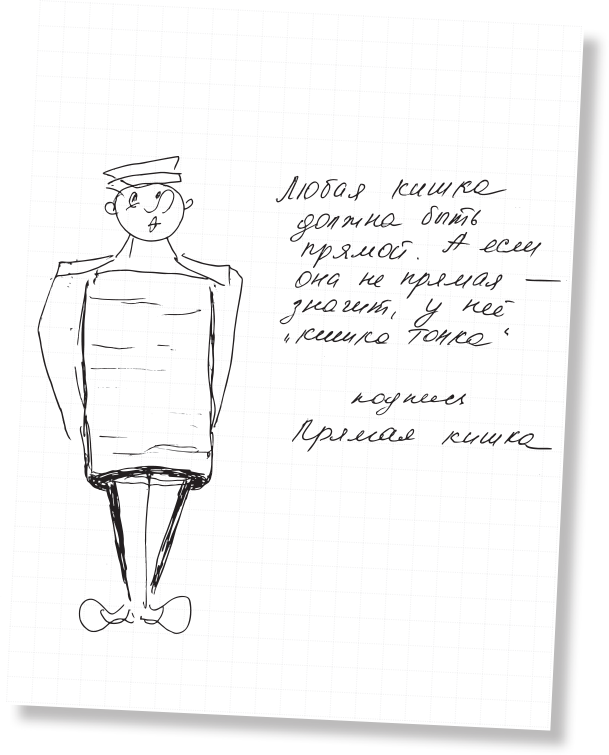 Любая кишка
должна быть
прямой. А если
она не прямая —
значит, у неё
„кишка тонка“
подпись
Прямая кишка